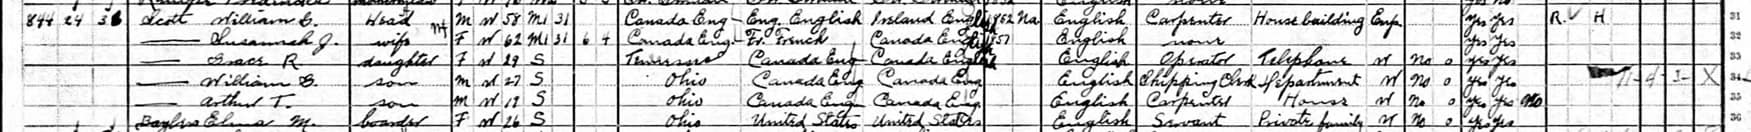 844 24 36 Scott William C. Head M W 58 M1 31 Canada Eng Eng. English Ireland Eng 1852 Na English Carpenter House building Emp. Yes Yes R. H 31
—— Susannah J. wife F W 62 M1 31 6 4 Canada Eng. Fr. French Canada Eng 1857 English none Yes Yes 32
—— Grace R daughter F W 29 S Tennessee Canada Eng Canada English English Operator Telephone W No 0 Yes Yes 33
—— William son M W 27 S Ohio Canada Eng Canada Eng English Shipping Clerk Department W No 0 Yes Yes X 34
—— Arthur T. son M W S Ohio Canada Eng. Canada Eng. English Carpenter House W No 0 Yes Yes No 35
Elma M. boarder F W 26 S Ohio United States United States English Servant Private family W No 0 Yes Yes 36